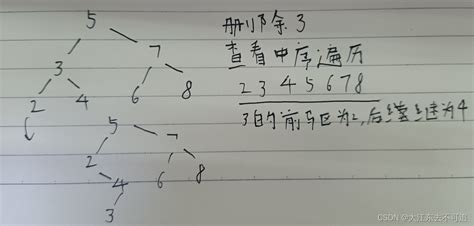 5
3 7
2 4 6 8
5
2 7
4 6 8
3
删除 3
查看中序遍历
2 3 4 5 6 7 8
3的前驱为2,后继为4
CSDN @大江东去不可追